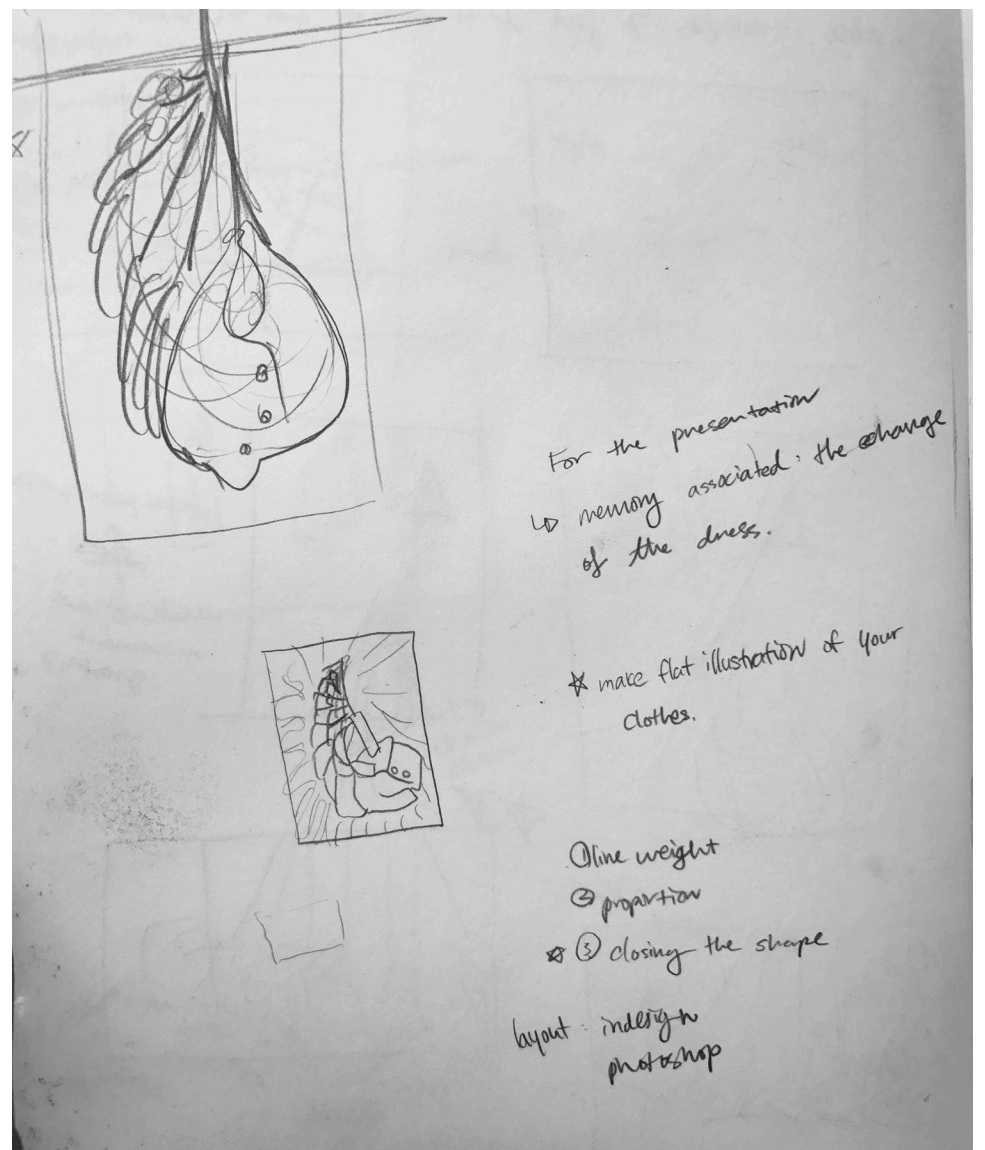 For the presentation
↳ memory associated: the change
of the dress.
☆ make flat illustration of your
clothes.
① line weight
② proportion
☆ ③ closing the shape
layout: indesign
photoshop